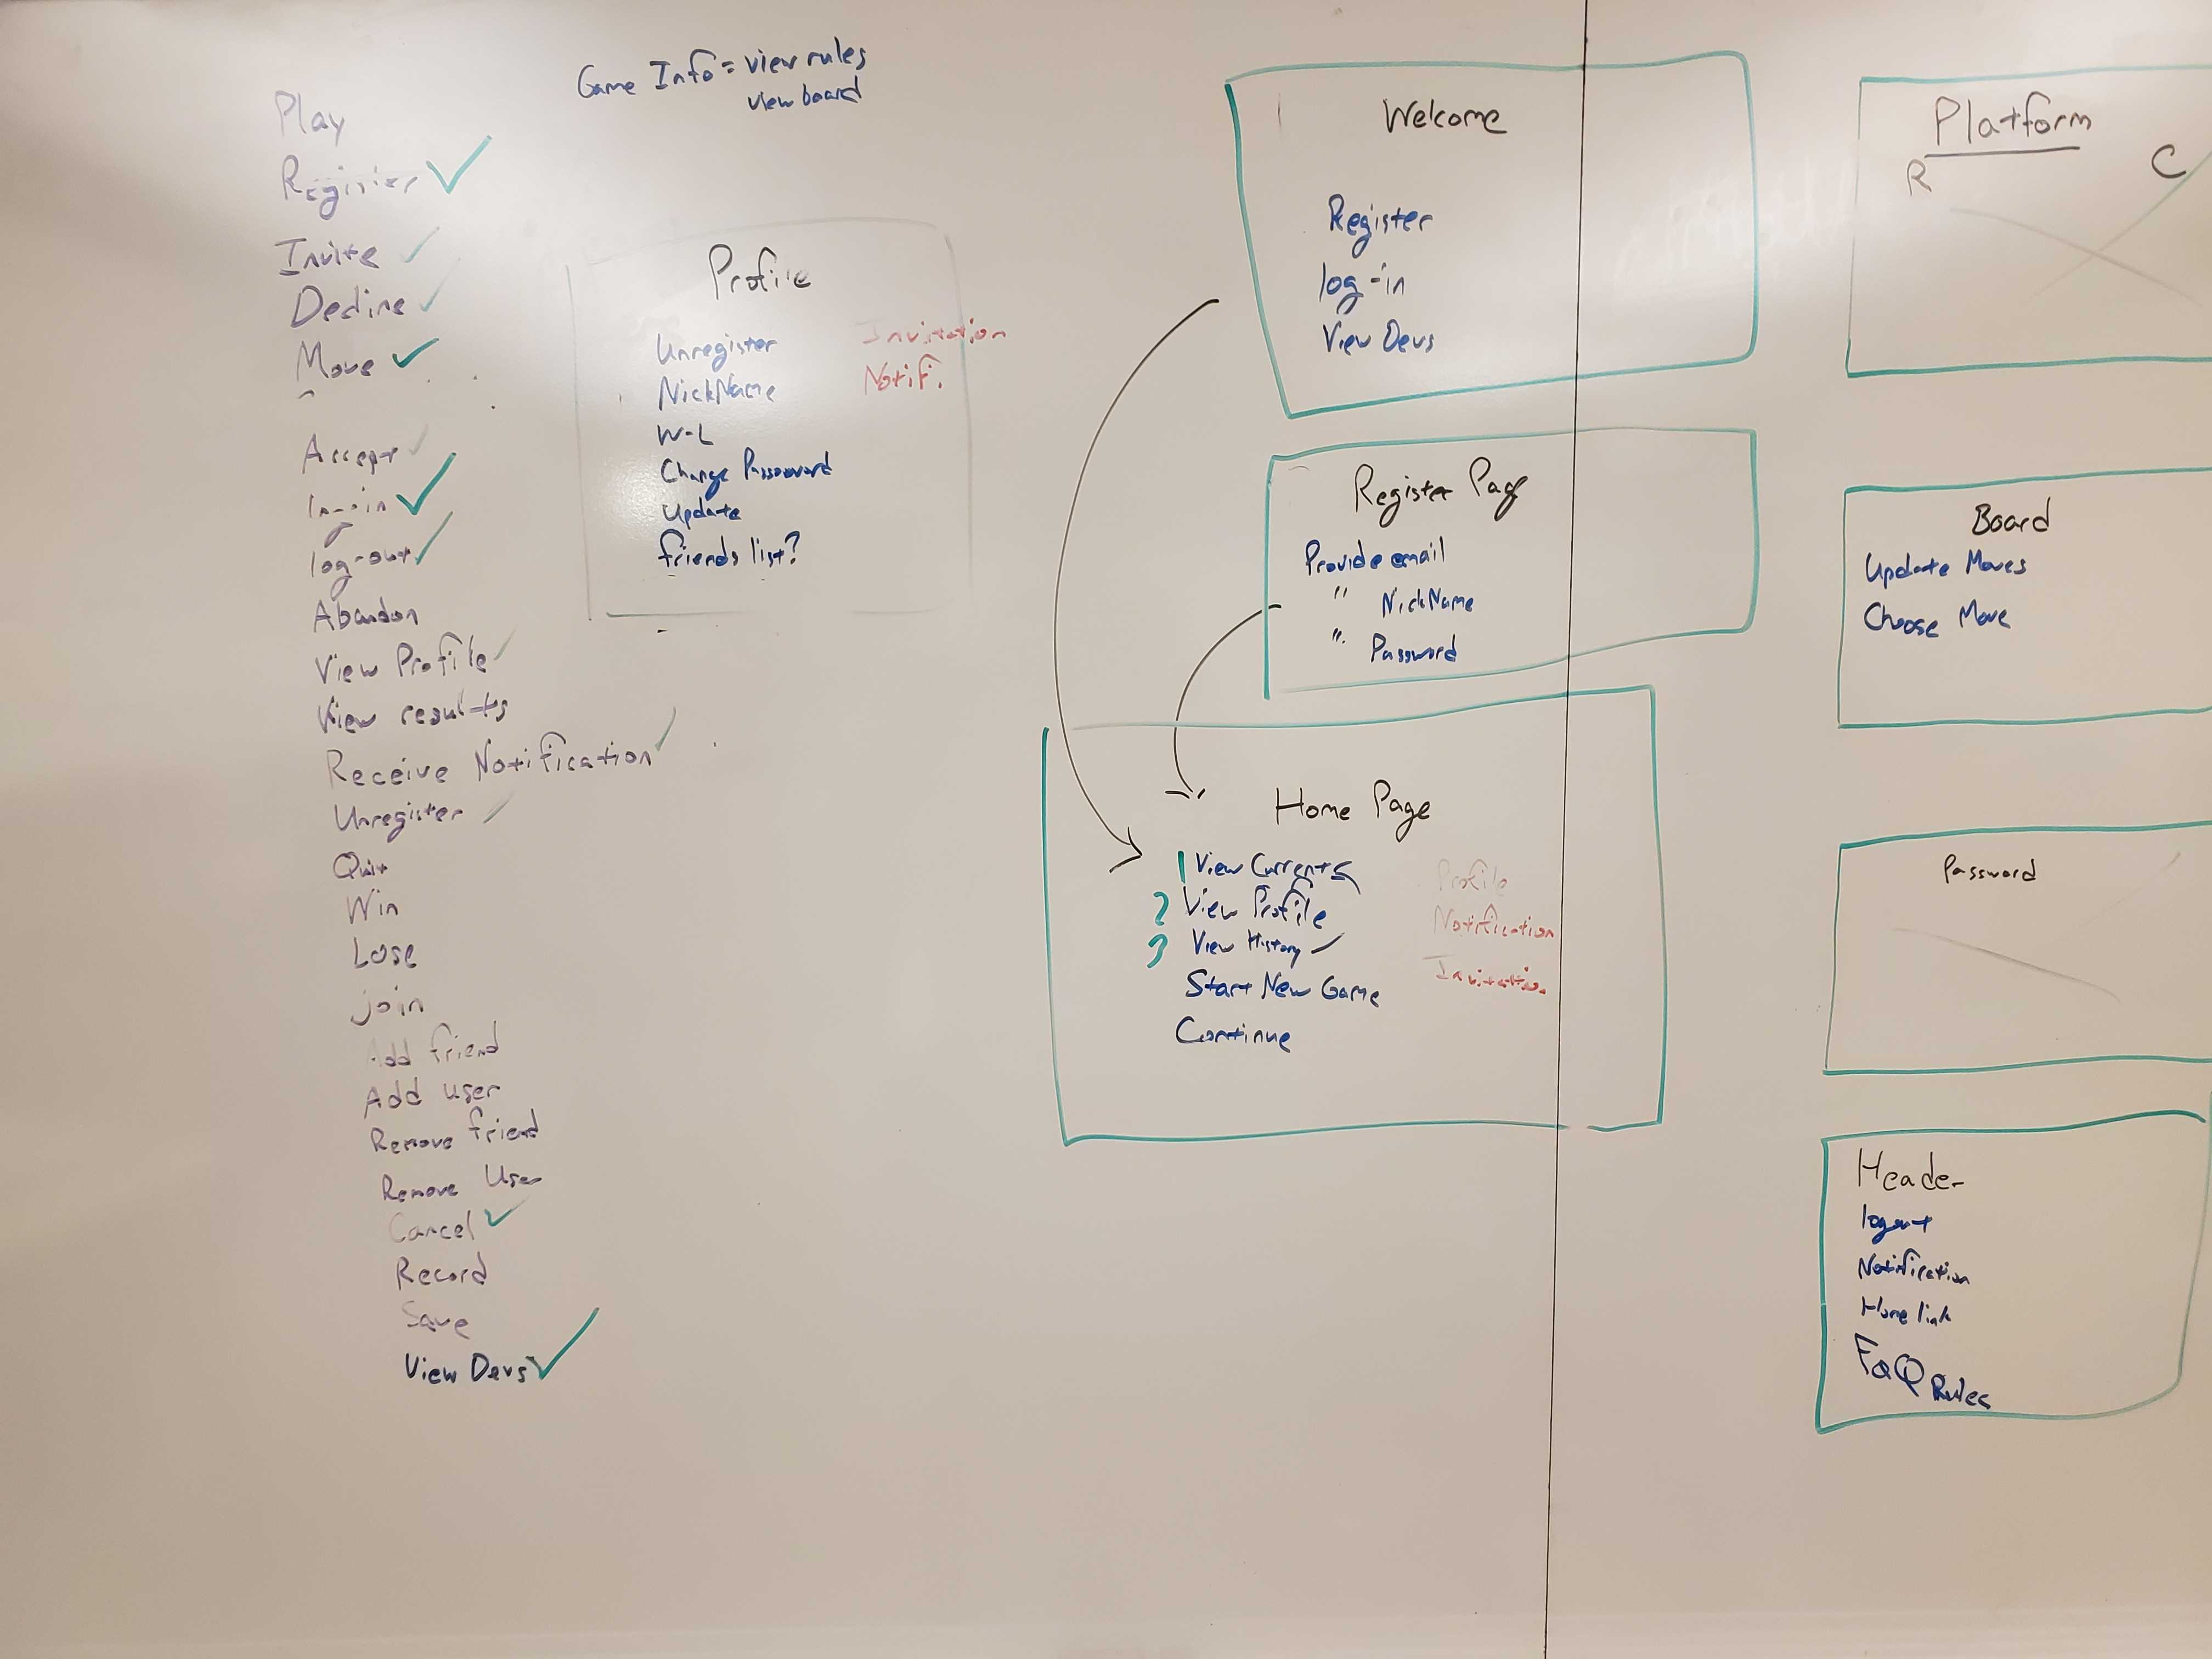 Game Info = view rules
view board
Play
Register ✓
Invite ✓
Decline ✓
Move ✓
Accept ✓
log-in ✓
log-out ✓
Abandon
View Profile ✓
View results
Receive Notification ✓
Unregister ✓
Quit
Win
Lose
join
Add friend
Add user
Remove friend
Remove User
Cancel ✓
Record
Save
View Devs ✓
Profile
Unregister
NickName
W-L
Change Passoword
Update
friends list?
Invitation
Notifi.
Welcome
Register
log-in
View Devs
Register Page
Provide email
" NickName
" Password
Home Page
1 View Currents
2 View Profile
3 View History ✓
Start New Game
Continue
Profile
Notification
Invitation
Platform
R C
Board
Update Moves
Choose Move
Password
Header
logout
Notification
Home link
FaQ Rules